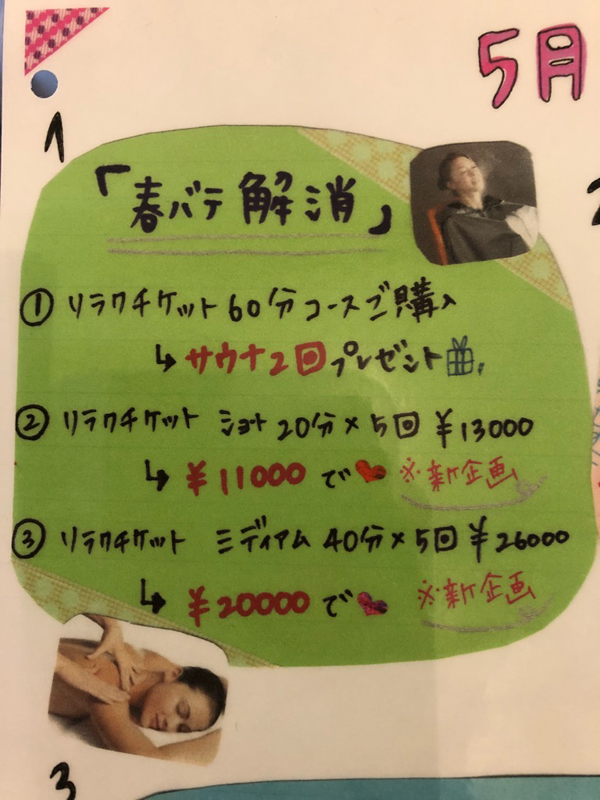 5月
1
「春バテ解消」
① リラクチケット60分コースご購入
↳ サウナ2回プレゼント
② リラクチケット ショート 20分×5回 ¥13000
↳ ¥11000で ※新企画
③ リラクチケット ミディアム 40分×5回 ¥26000
↳ ¥20000で ※新企画
3